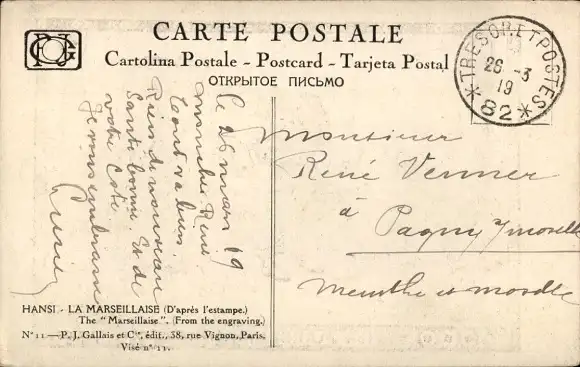 CARTE POSTALE
Cartolina Postale - Postcard - Tarjeta Postal
ОТКРЫТОЕ ПИСЬМО
*TRESOR.ET POSTES*
26 -3
19
82
Le 26 mars 19
mon cher René
tout va bien
Rien de nouveau
Santé bonne. Et de
votre côté
Je vous embrasse
Monsieur
René Venner
à Pagny s/moselle
Meurthe et moselle
HANSI - LA MARSEILLAISE (D'après l'estampe.)
The "Marseillaise". (From the engraving.)
N° 11. — P. J. Gallais et Cie, édit., 38, rue Vignon, Paris.
Visé n° 11.